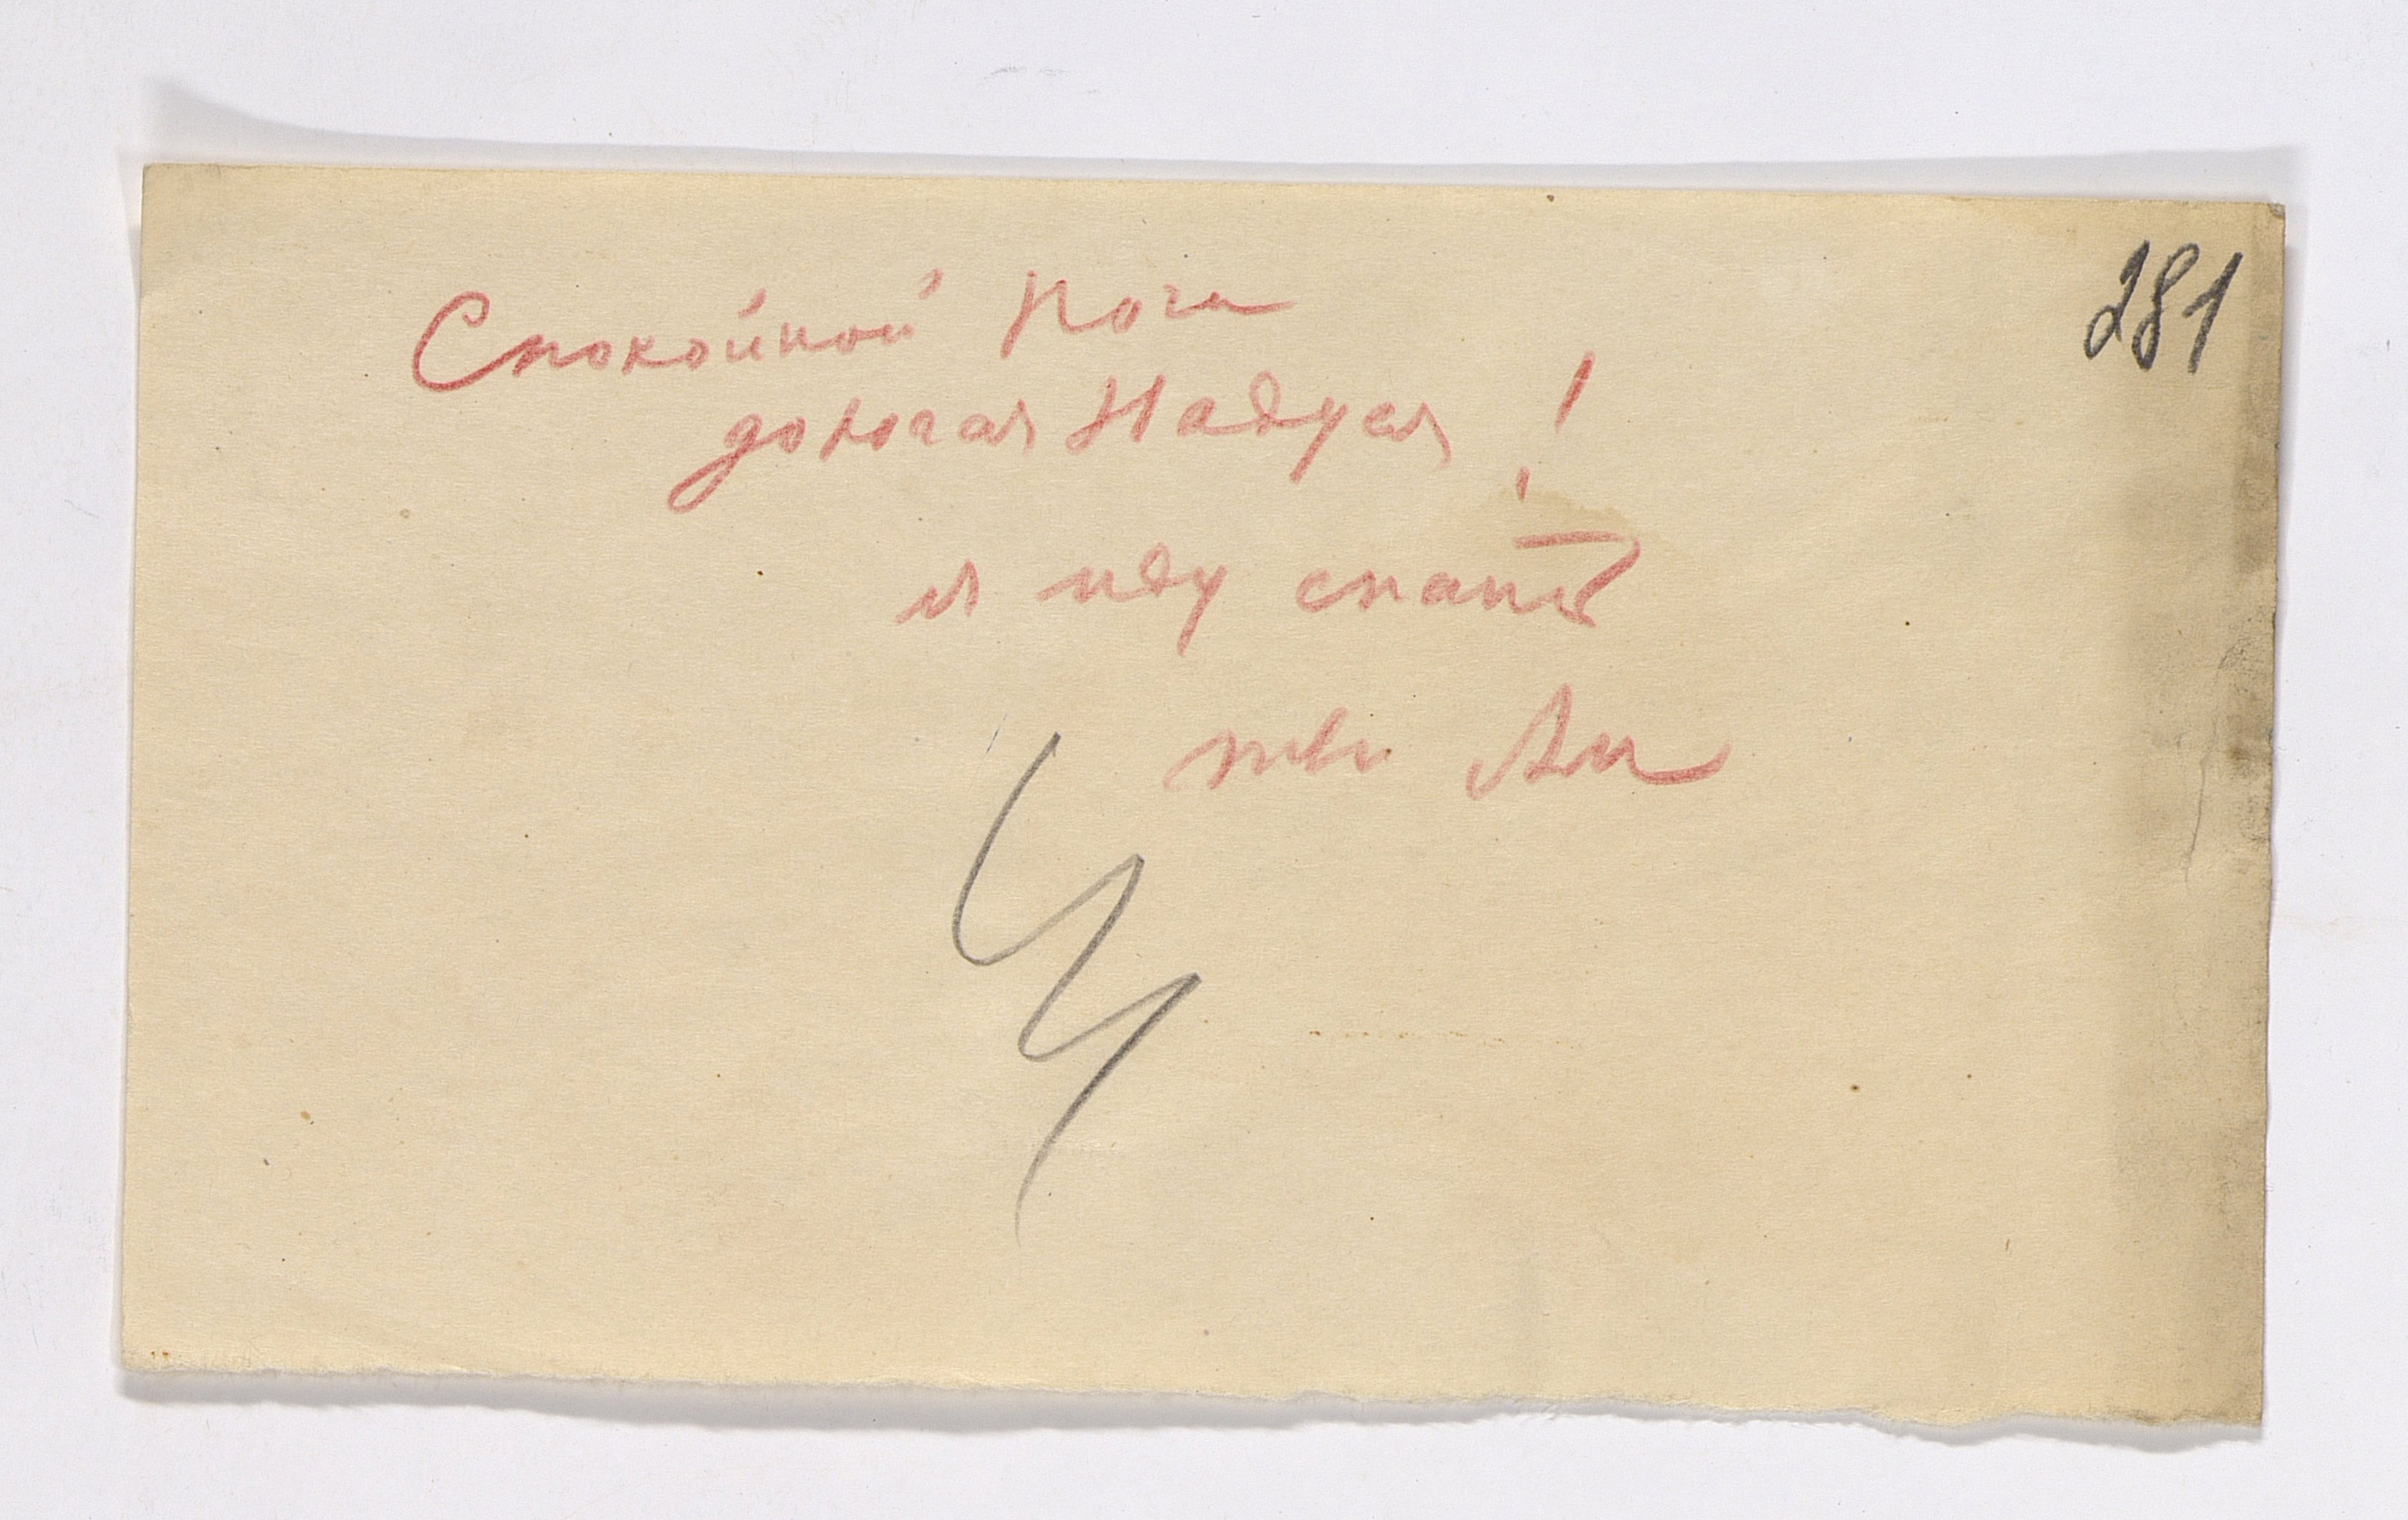 281
Спокойной ночи
дорогая Надуся!
я иду спать
твой Ал